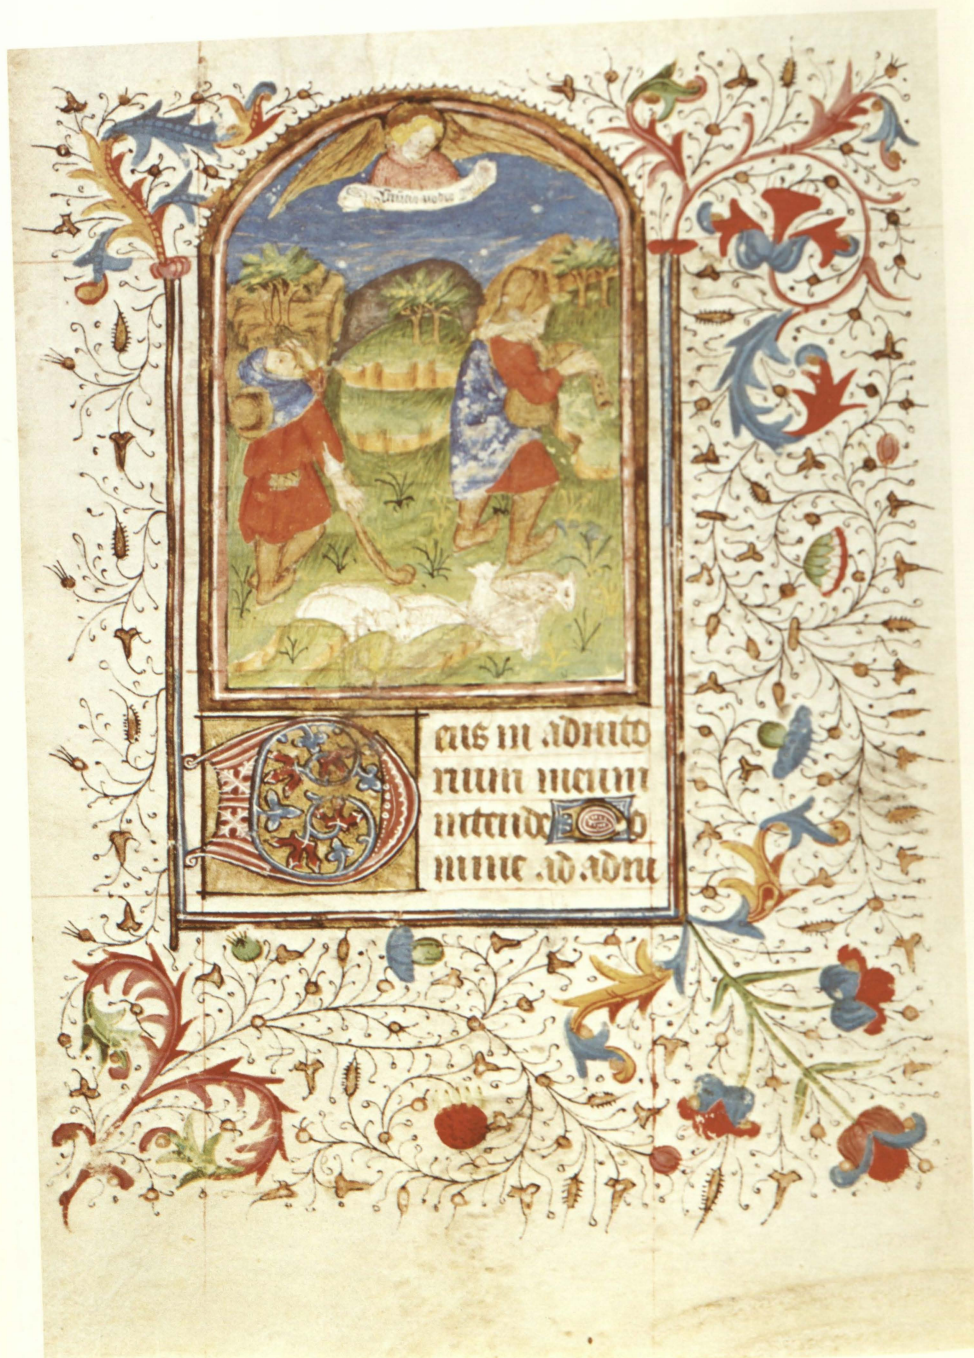 Deus in adiuto
rium meum
intende D
mine ad adiu